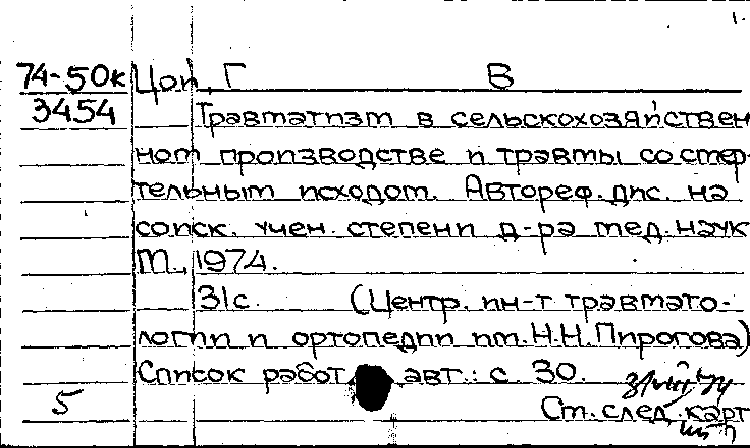 74-50к Цоп, Г В
3454 Травматизм в сельскохозяйствен
ном производстве и травмы со смер-
тельным исходом. Автореф. дис. на
соиск. учен. степени д-ра мед. наук
М., 1974.
31с. (Центр. ин-т травмато-
логии и ортопедии им. Н.Н. Пирогова)
Список работ авт.: с. 30.
5 См. след. карт